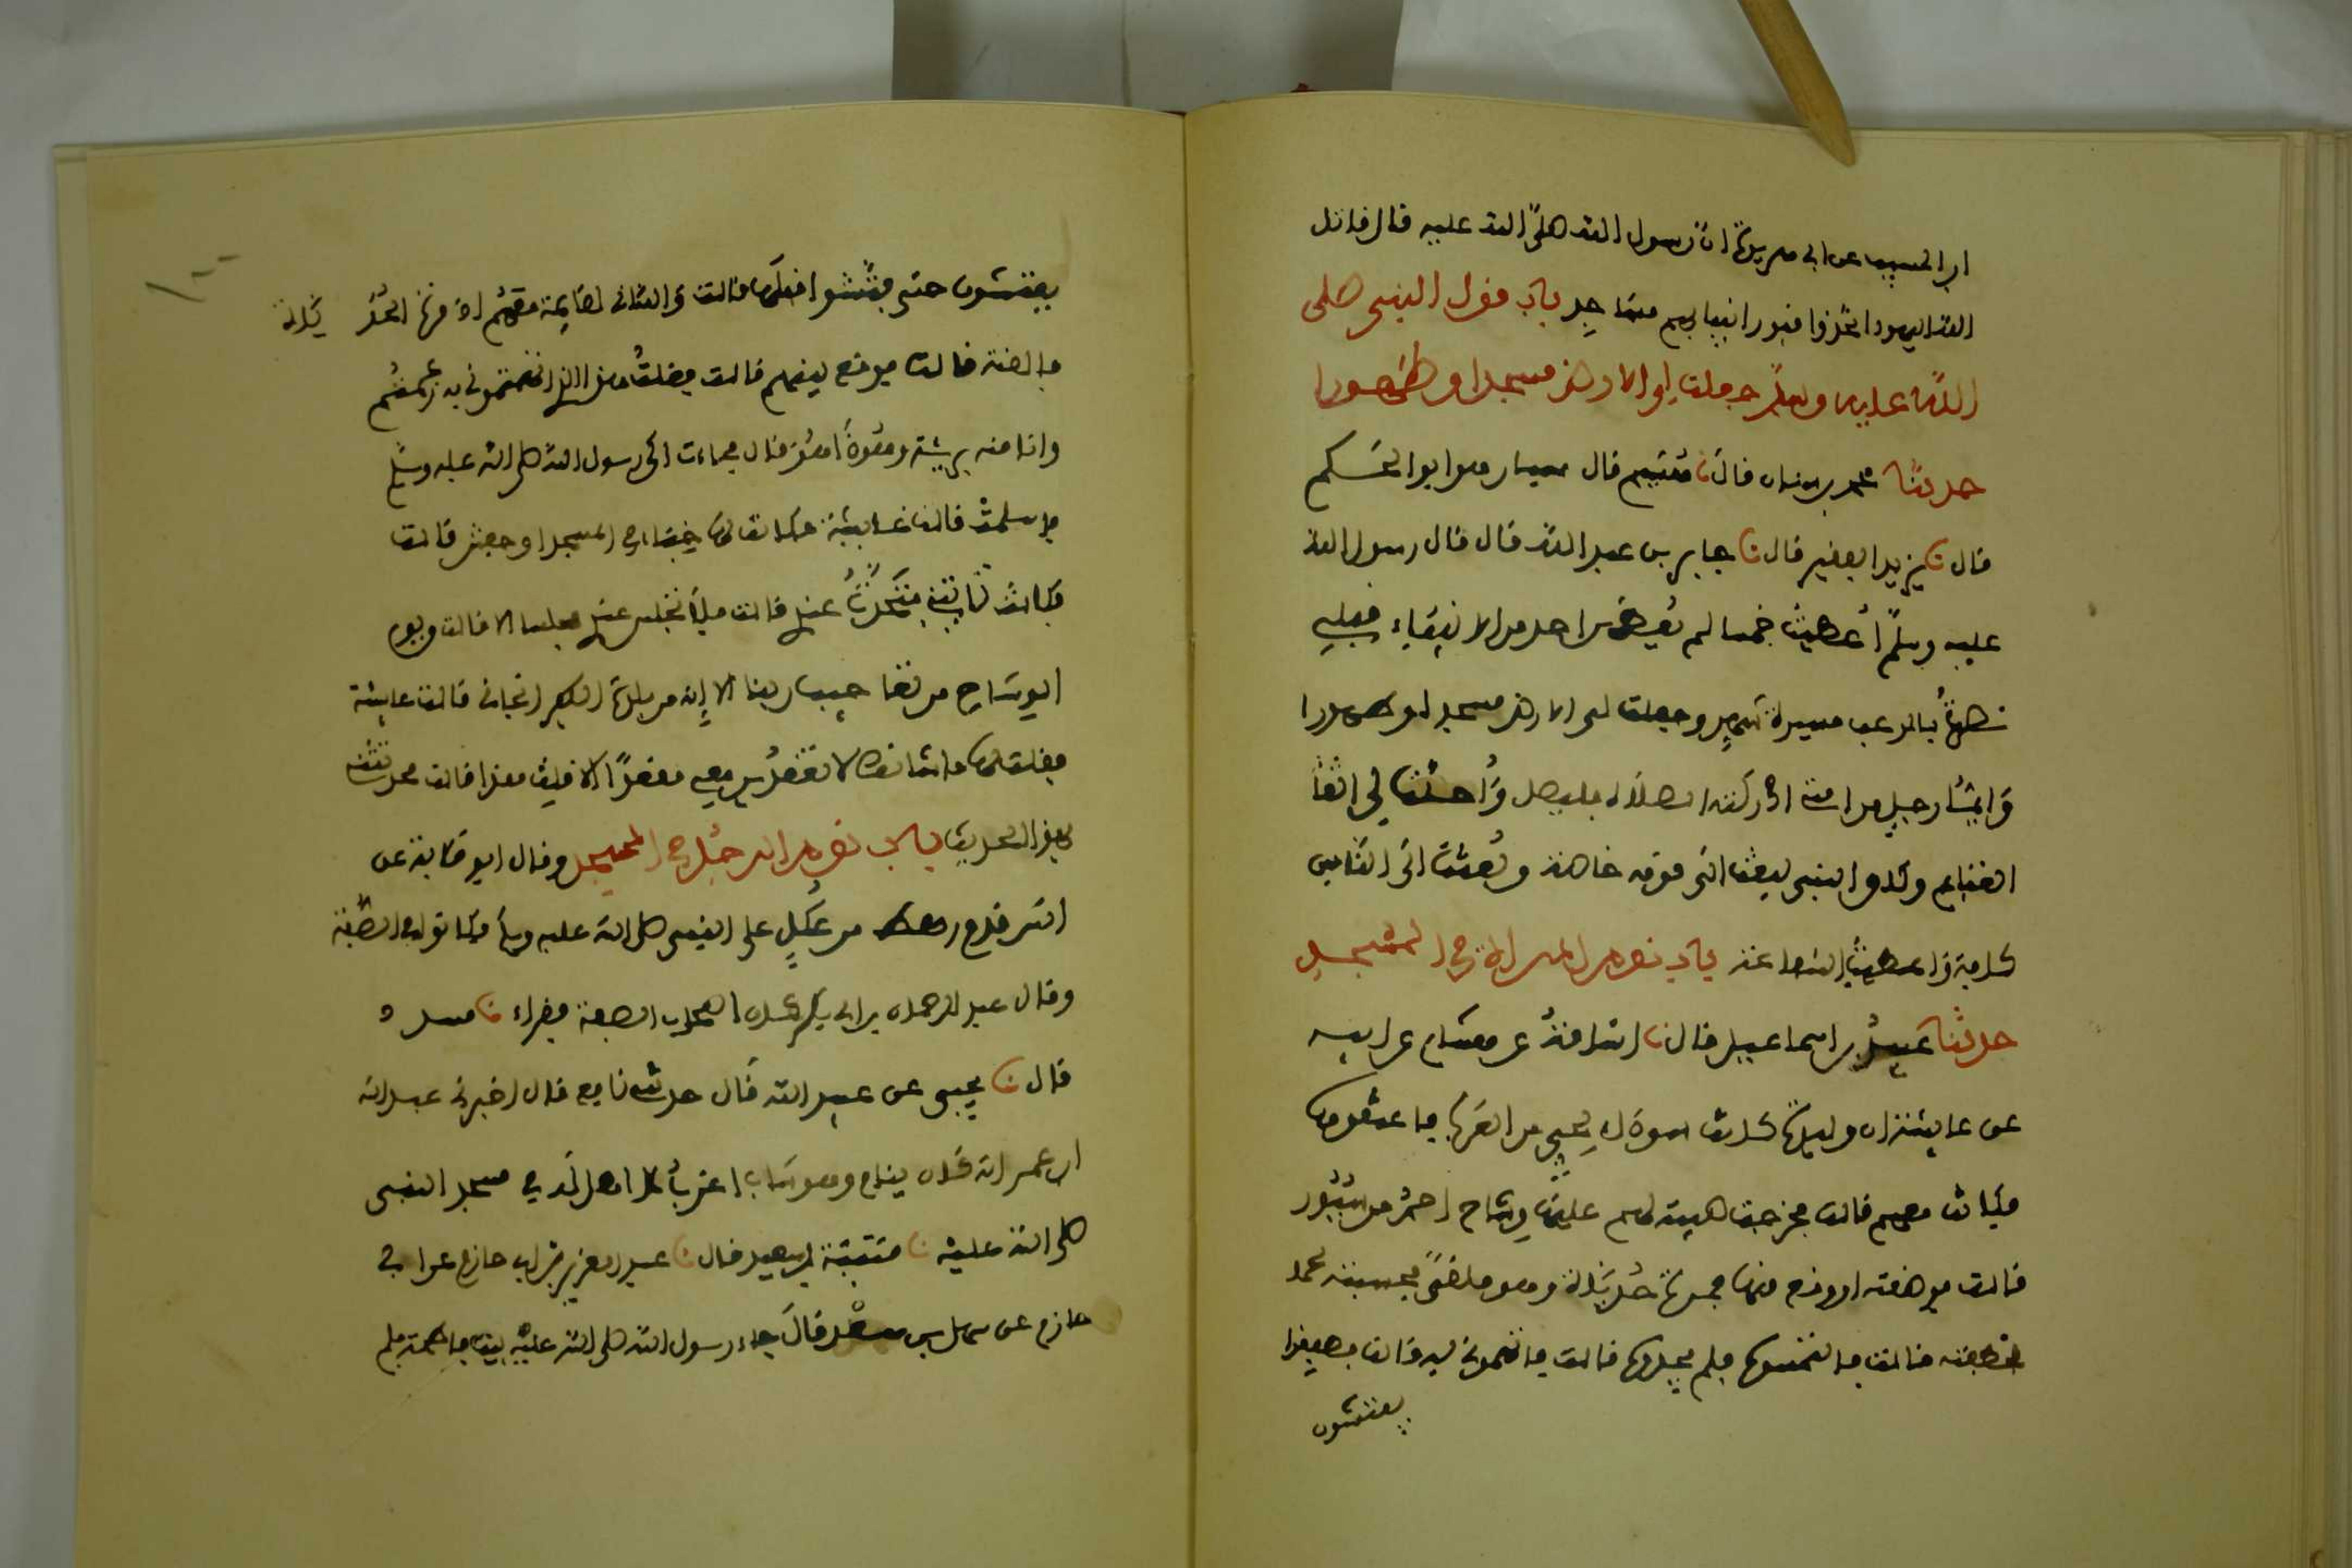 ابن المسيب عن ابى هريرة ان رسول الله صلى الله عليه قال قاتل
الله اليهود اتخذوا قبور انبيايهم مساجد باب قول النبى صلى
الله عليه وسلم جعلت لى الارض مسجدا وطهورا
حدثنا محمد بن سنان قال نا هشيم قال سيار هو ابو الحكم
قال نا يزيد الفقير قال نا جابر بن عبد الله قال قال رسول الله
عليه وسلم أعطيت خمسا لم يعطهن احد من الانبياء قبلى
نصرت بالرعب مسيرة شهر وجعلت لى الارض مسجدا وطهورا
وايما رجل من امتى ادركته الصلاة فليصل وأحلت لى
الغنايم وكان النبى يبعث الى قومه خاصة وبعثت الى الناس
كافة واعطيت الشفاعة باب نوم المراة فى المسجد
حدثنا عبيد بن اسماعيل قال نا ابو اسامة عن هشام عن ابيه
عن عايشة ان وليدة كانت سوداء لحى من العرب فاعتقوها
فكانت معهم قالت فخرجت صبية لهم عليها وشاح احمر من سيور
قالت فوضعته او وقع منها فمرت حدياة وهو ملقى فحسبته لحما
فخطفته قالت فالتمسوه فلم يجدوه قالت فاتهمونى به قالت فطفقوا
يفتشون
يفتشون حتى فتشوا قبلها قالت والله انى لقايمة معهم اذ مرت الحدياة
فالقته قالت فوقع بينهم قالت فقلت هذا الذى اتهمتمونى به زعمتم
وانا منه بريئة وهو ذا هو قال فجاءت الى رسول الله صلى الله عليه وسلم
فاسلمت قالت عايشة فكانت لها خباء فى المسجد او حفش قالت
فكانت تاتينى فتحدث عندى قالت فلا تجلس عندى مجلسا الا قالت ويوم
الوشاح من تعاجيب ربنا الا إنه من بلدة الكفر انجانى قالت عايشة
فقلت لها ما شانك لا تقعدين معى مقعدا الا قلت هذا قالت فحدثتنى
بهذا الحديث باب نوم الرجل فى المسجد وقال ابو قلابة عن
انس قدم رهط من عكل على النبى صلى الله عليه وسلم فكانوا فى الصفة
وقال عبد الرحمان بن ابى بكر كان اصحاب الصفة فقراء نا مسدد
قال نا يحيى عن عبيد الله قال حدثنى نافع قال اخبرنى عبد الله
ابن عمر انه كان ينام وهو شاب اعزب لا اهل له فى مسجد النبى
صلى الله عليه نا قتيبة بن سعيد قال نا عبد العزيز بن ابى حازم عن ابى
حازم عن سهل بن سعد قال جاء رسول الله صلى الله عليه بيت فاطمة فلم